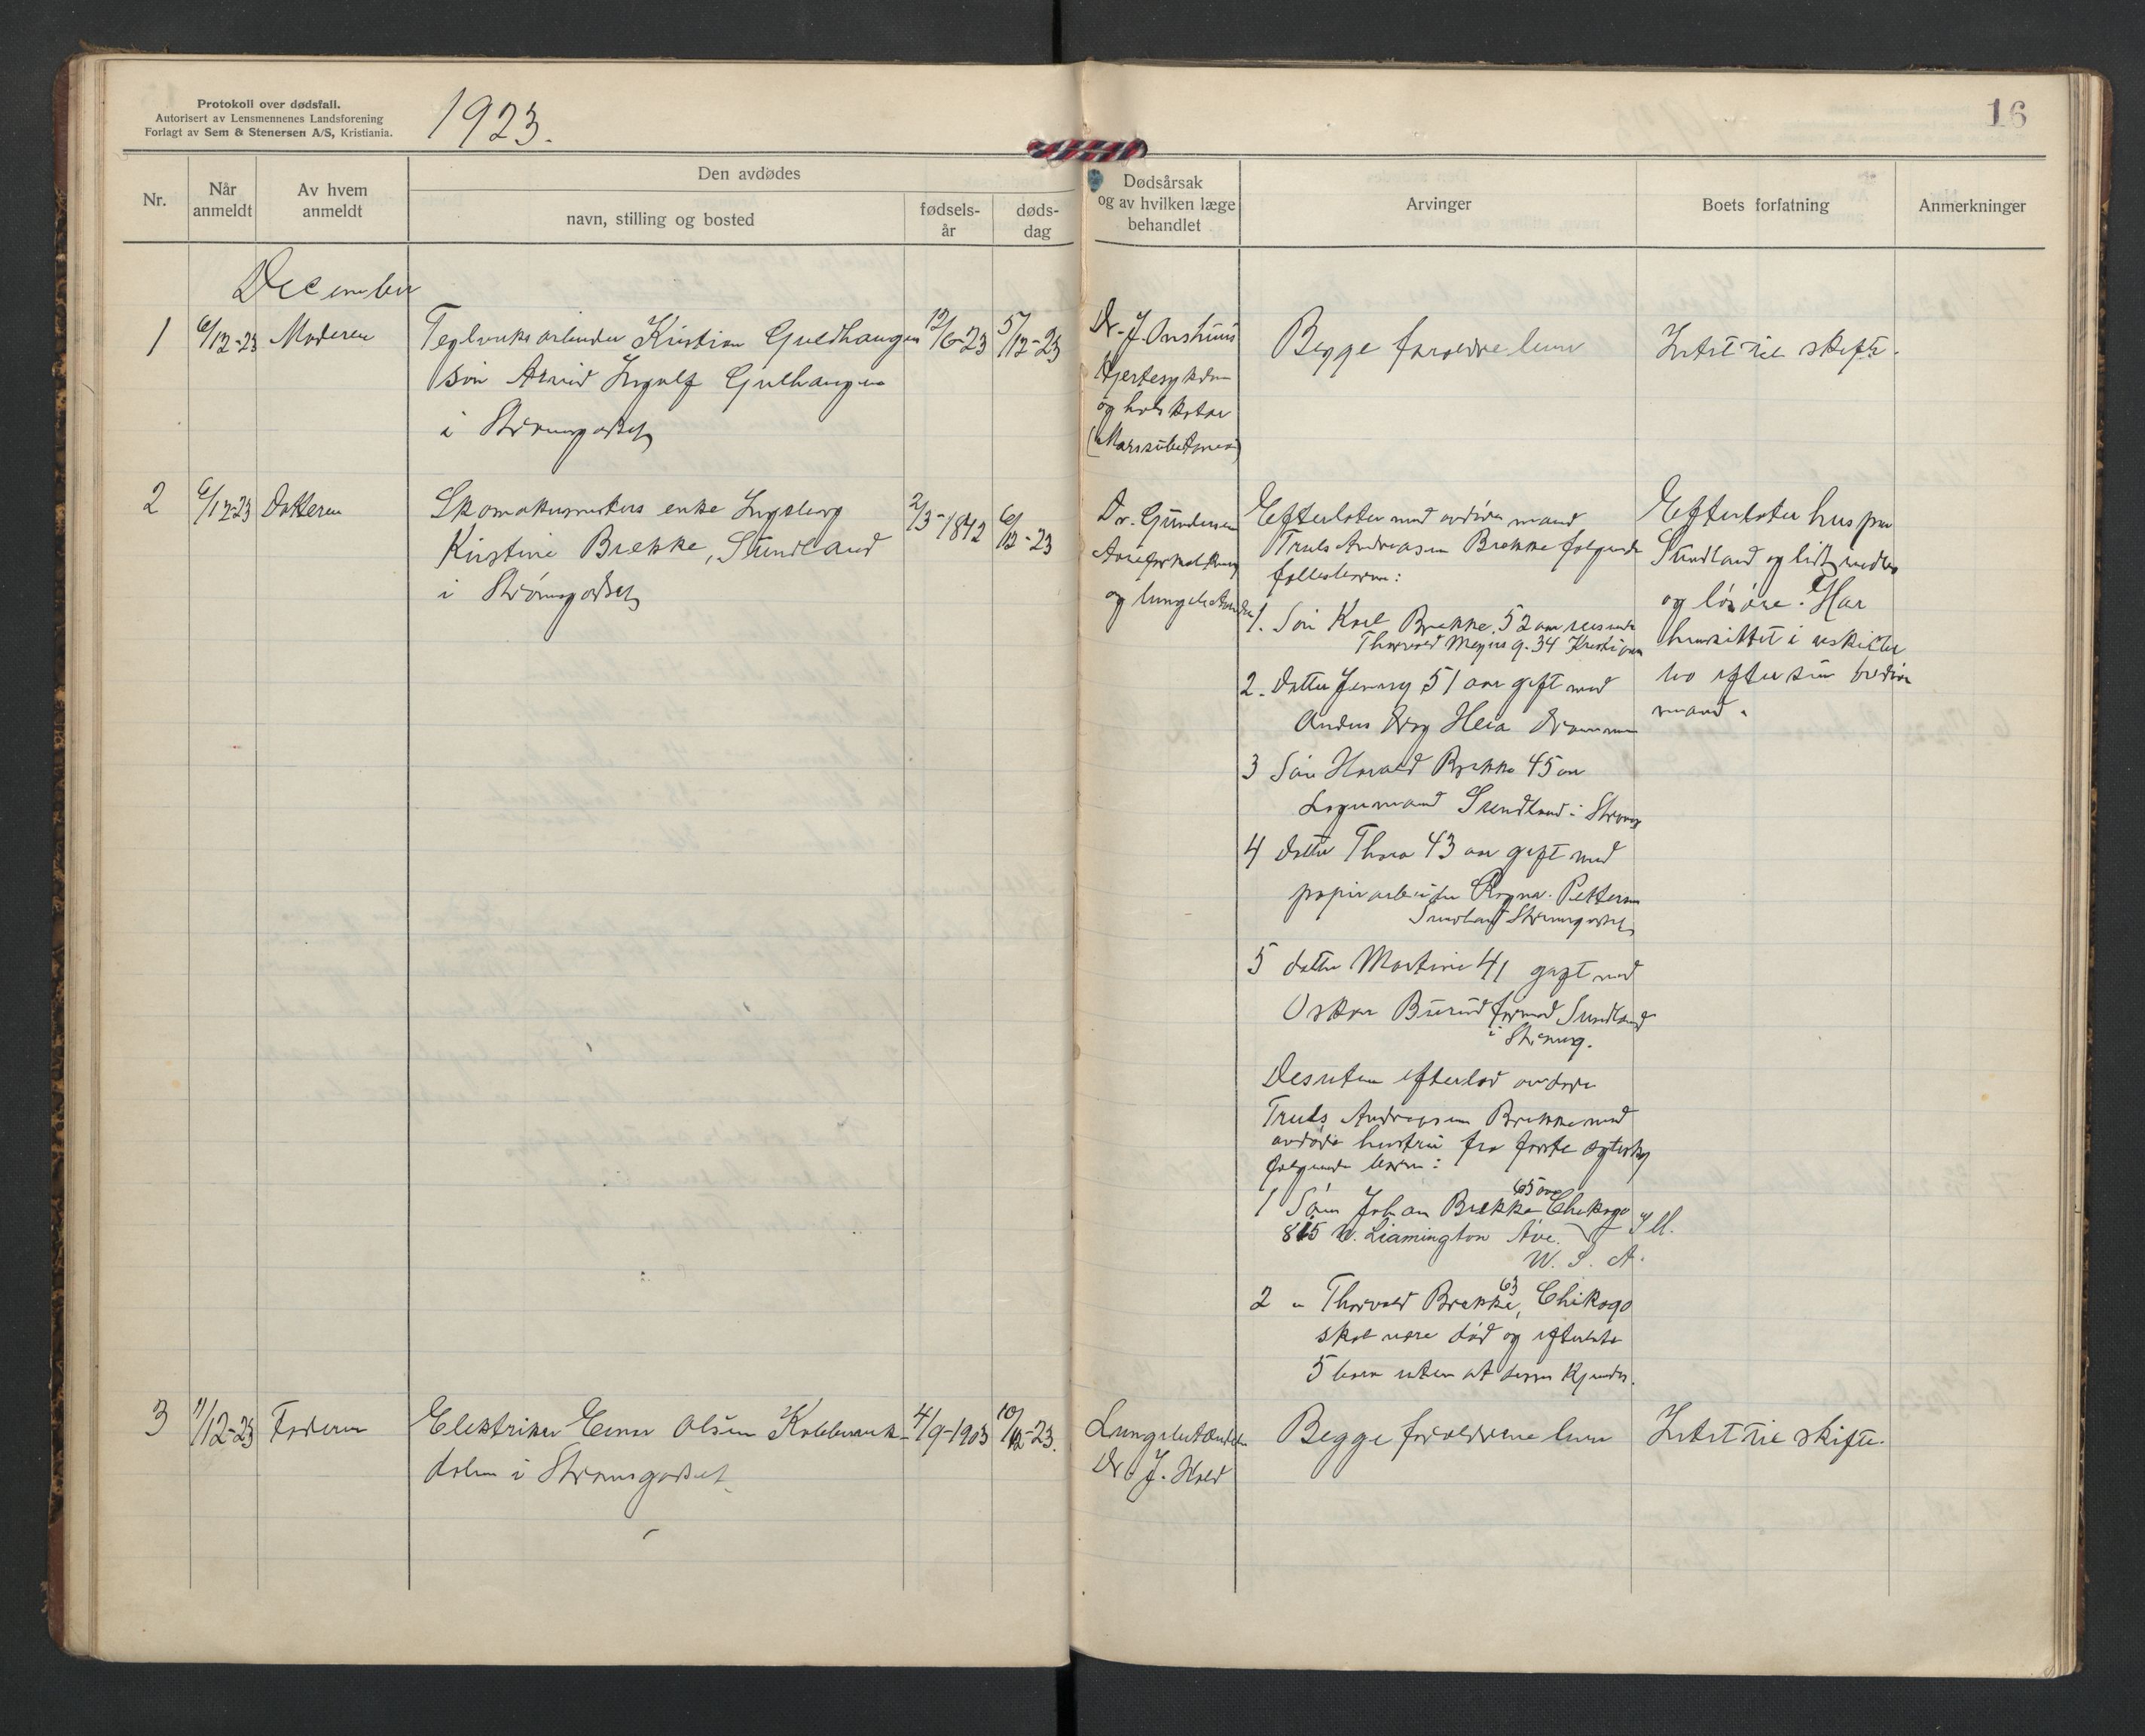 Protokoll over dødsfall.
Autorisert av Lensmennenes Landsforening
Forlagt av Sem & Stenersen A/S, Kristiania.
1923.
16
Nr.
Når anmeldt
Av hvem anmeldt
Den avdødes
navn, stilling og bosted
fødsels-år
døds-dag
Dødsårsak og av hvilken læge behandlet
Arvinger
Boets forfatning
Anmerkninger
December
1 6/12-23 Moderen
Teglverksarbeider Kristian Guldhaugen
søn Arvid Ingolf Gulhaugen
i Strømsgodset
12/6-23 5/12-23
Dr. J.
Hjertesykdom
og
Begge forældre lever
Intet til skifte.
2 6/12-23 Datteren
Skomakermesters enke Ingeborg
Kirstine Brekke, Sundland
i Strømsgodset
2/3-1842 6/12-23
Dr. Gundersen
Areforkalkning
og lungebetændelse
Efterlater med avdøde mand
Truls Andreasen Brekke følgende
fællesbarn:
1. Søn Karl Brekke, 52 aar reisende
Thorvald Meyers g. 34 Kristiania
2. Datter Jenny 51 aar gift med
Anders Heia Drammen
3 Søn Harald Brekke 45 aar
Sundland i Strømsg
4 datter Thora 43 aar gift med
papirarbeider Ragnar Pettersen
Sundland Strømsgodset
5 datter Martine 41 gift med
Oskar Burud formand Sundland
i Strømsg.
Desuten efterlod avdøde
Truls Andreasen Brekke med
avdøde hustru fra første egteskap
følgende barn:
1 Søn Johan Brekke 65 aar Chikago Ill.
815 N. Liamington Ave.
U. S. A.
2 " Thorvald Brekke, 63 Chikago
skal være død og efterlate
5 barn uten at disse kjendes.
Efterlater hus paa
Sundland og litt møbler
og løsøre. Har
hensittet i uskiftet
bo efter sin avdøde
mand.
3 11/12-23 Faderen
Elektriker Einar Olsen Kobbervik-
dalen i Strømsgodset
4/9-1903 10/12-23.
Lungebetændelse
Dr. J. Hald
Begge forældrene lever
Intet til skifte.